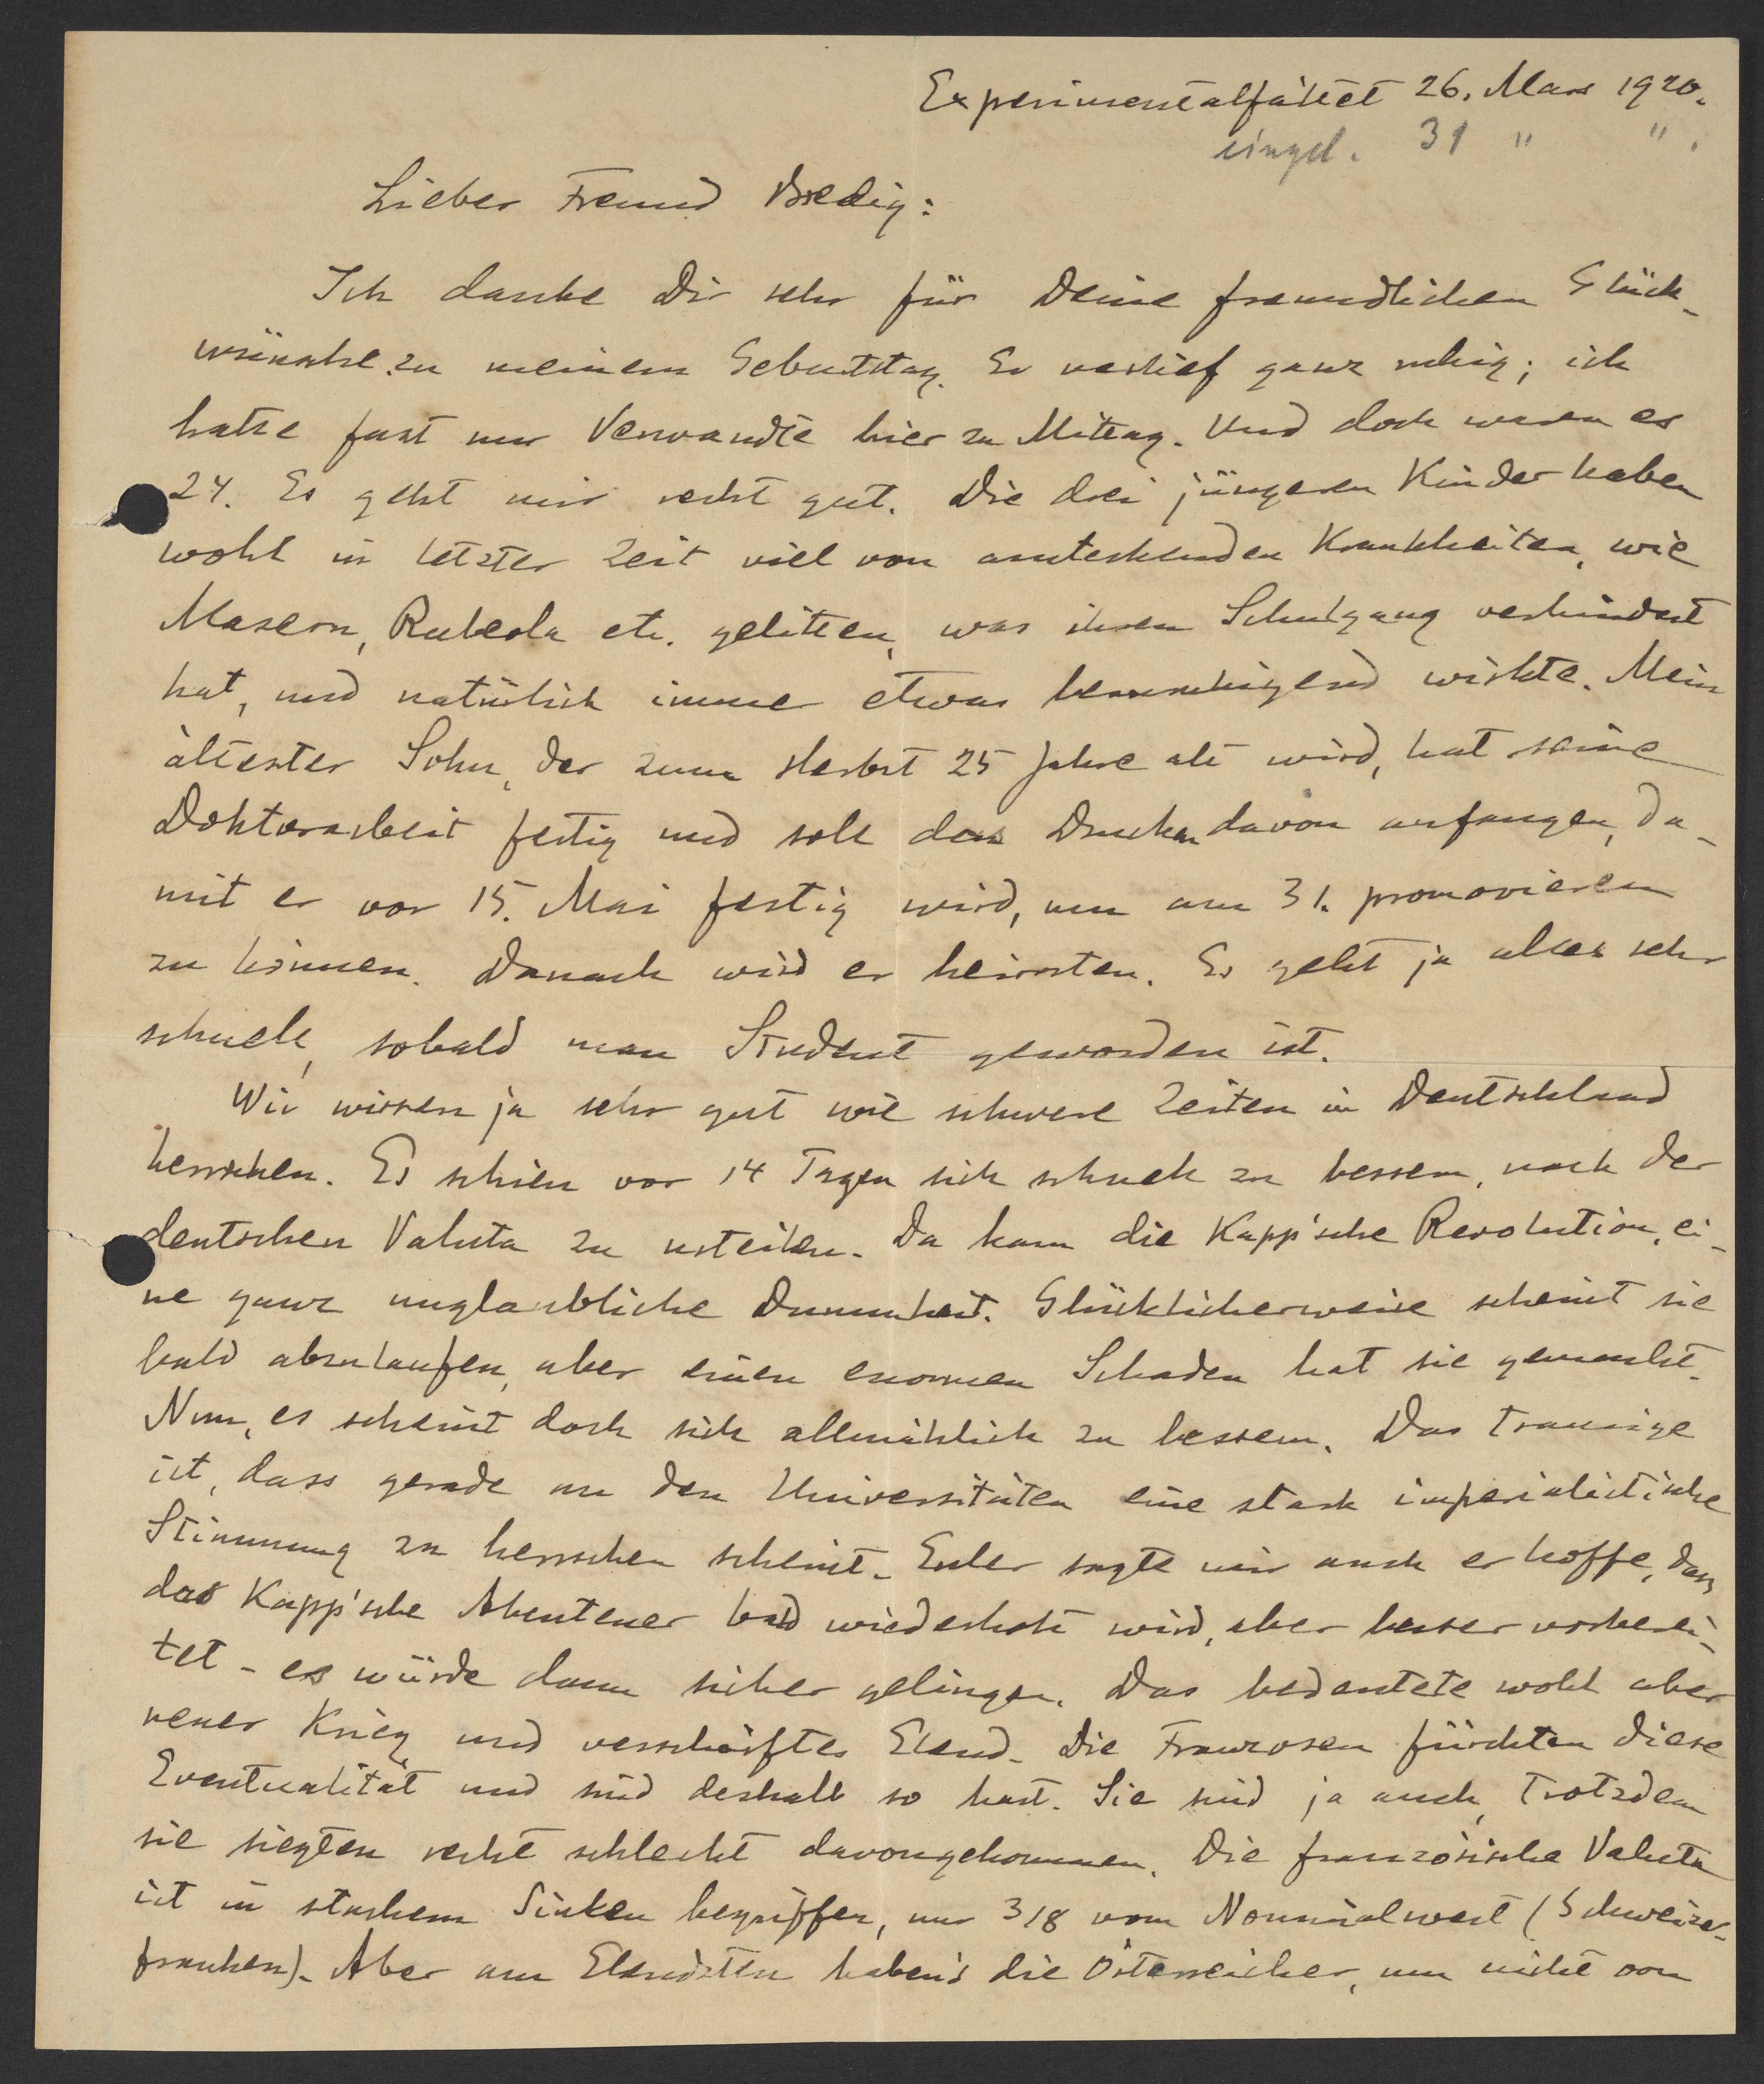 Experimentalfältet 26. Mars 1920.
eingel. 31 " ".
Lieber Freund Bredig:
Ich danke Dir sehr für Deine freundlichen Glück-
wünsche zu meinem Geburtstag. Er verlief ganz ruhig; ich
hatte fast nur Verwandte hier zu Mittag. Und doch waren es
24. Es geht mir recht gut. Die drei jüngeren Kinder haben
wohl in letzter Zeit viel von ansteckenden Krankheiten, wie
Masern, Rubeola etc. gelitten, was ihren Schulgang verhindert
hat, und natürlich immer etwas beunruhigend wirkte. Mein
ältester Sohn, der zum Herbst 25 Jahre alt wird, hat seine
Doktorarbeit fertig und soll den Drucken davon anfangen, da-
mit er vor 15. Mai fertig wird, um am 31. promovieren
zu können. Danach wird er heiraten. Es geht ja alles sehr
schnell, sobald man Student geworden ist.
Wir wissen ja sehr gut wie schwere Zeiten in Deutschland
herrschen. Es schien vor 14 Tagen sich schnell zu bessern, nach der
deutschen Valuta zu urteilen. Da kam die Kapp'sche Revolution, ei-
ne ganz unglaubliche Dummheit. Glücklicherweise scheint sie
bald abzulaufen, aber einen enormen Schaden hat sie gemacht.
Nun, es scheint doch sich allmählich zu bessern. Das traurige
ist, dass gerade an den Universitäten eine stark imperialistische
Stimmung zu herrschen scheint. Euler sagte mir auch er hoffe, dass
das Kapp'sche Abenteuer bald wiederholt wird, aber besser vorberei-
tet - es würde dann sicher gelingen. Das bedeutete wohl aber
neuer Krieg und verschärftes Elend. Die Franzosen fürchten diese
Eventualität und sind deshalb so hart. Sie sind ja auch, trotzdem
sie siegten recht schlecht davongekommen. Die französische Valuta
ist in starkem Sinken begriffen, nur 3/8 vom Nominalwert (Schweizer-
franken). Aber am Elendsten haben's die Österreicher, um nicht von